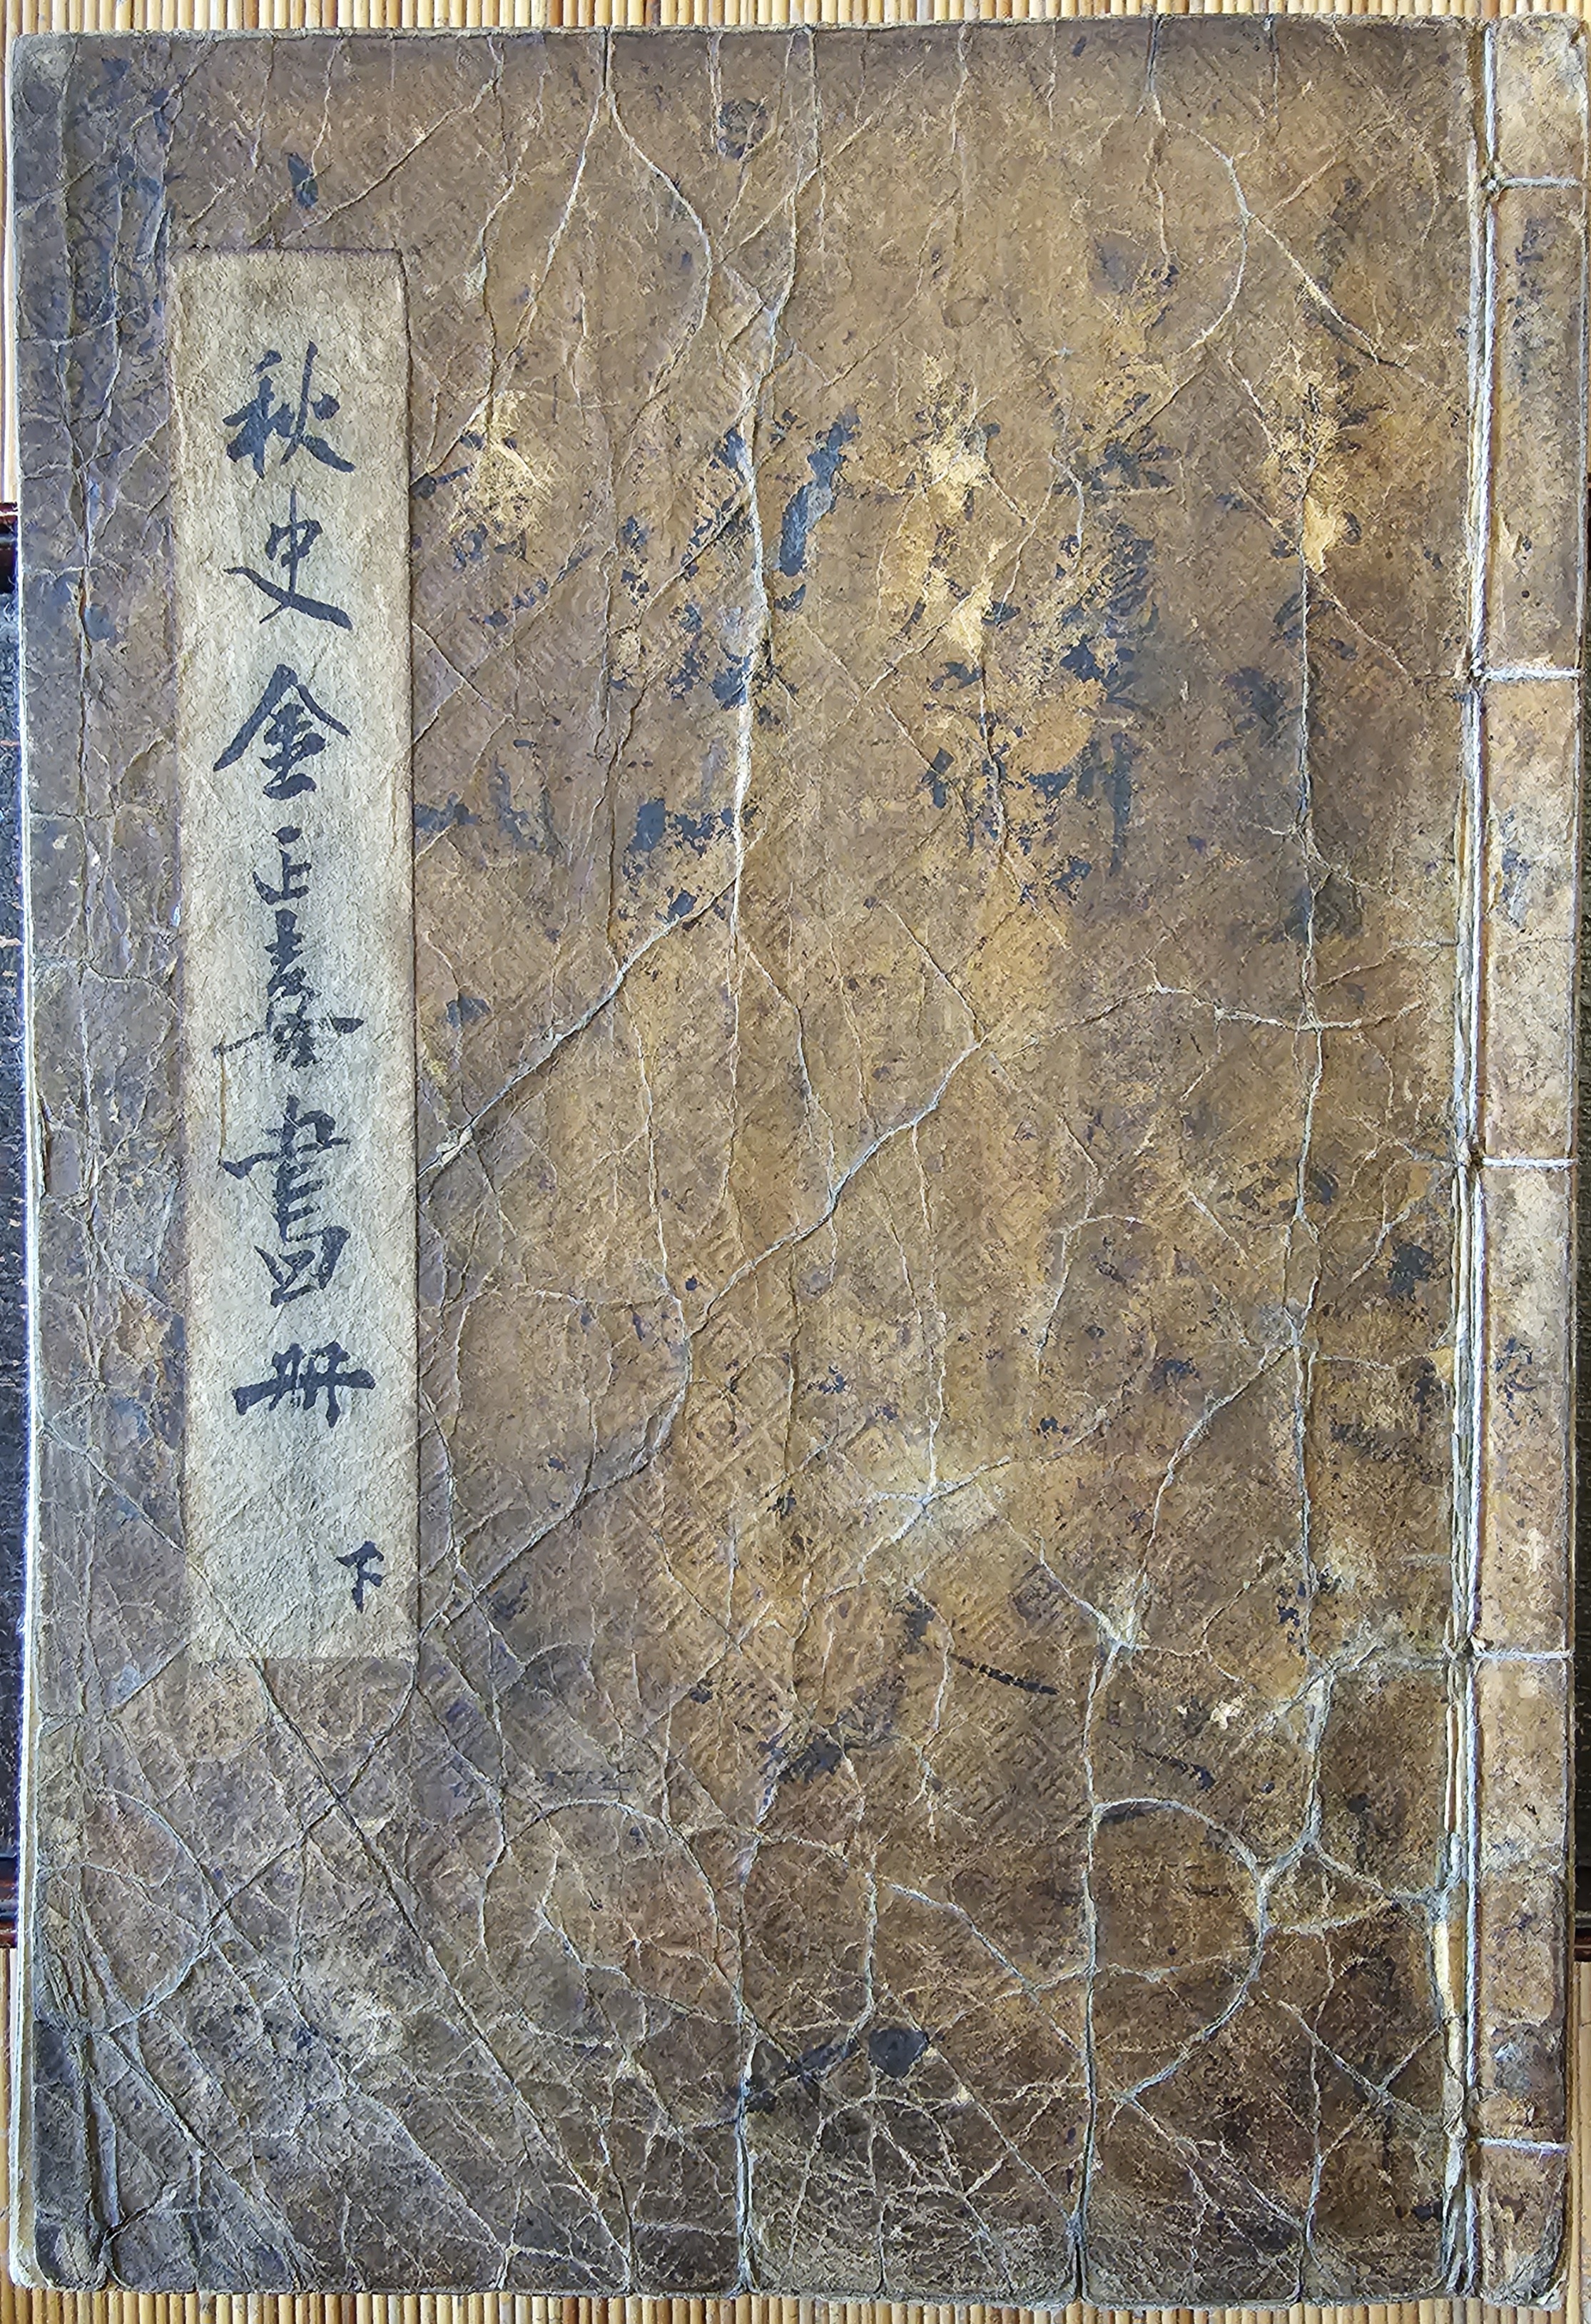 秋史金正喜書册
下